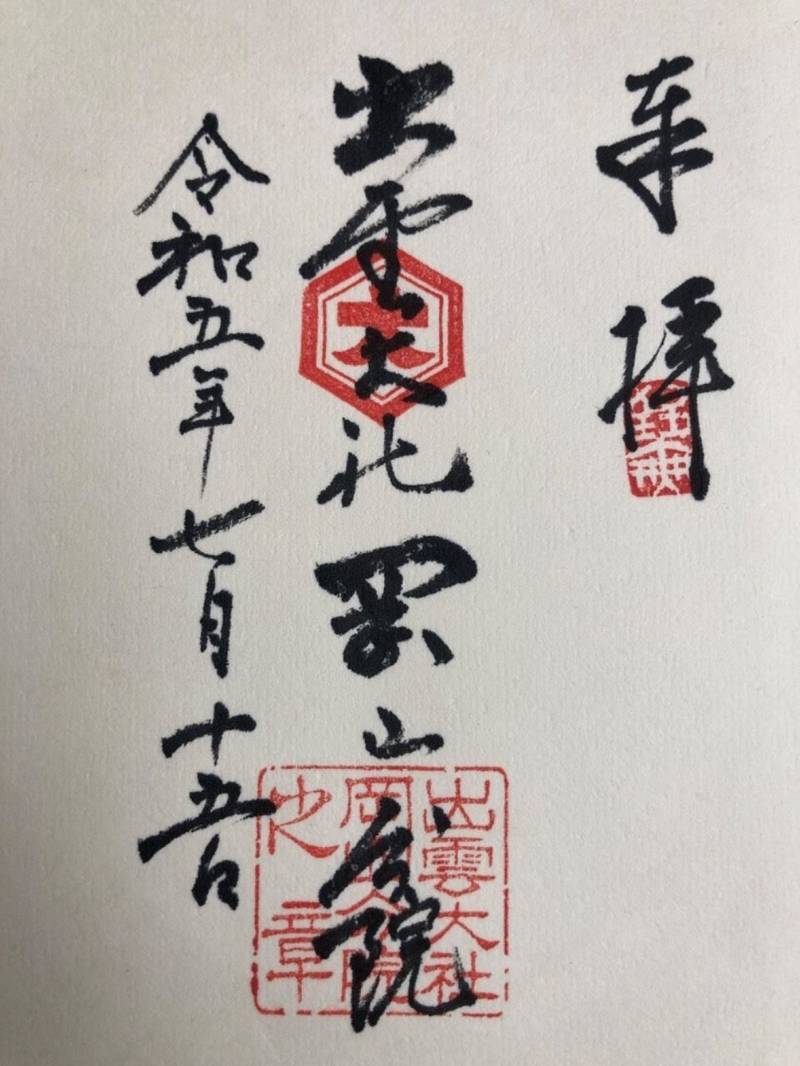 奉拝
出雲大社岡山分院
令和五年七月十五日
大
出雲大社
岡山分院
之章